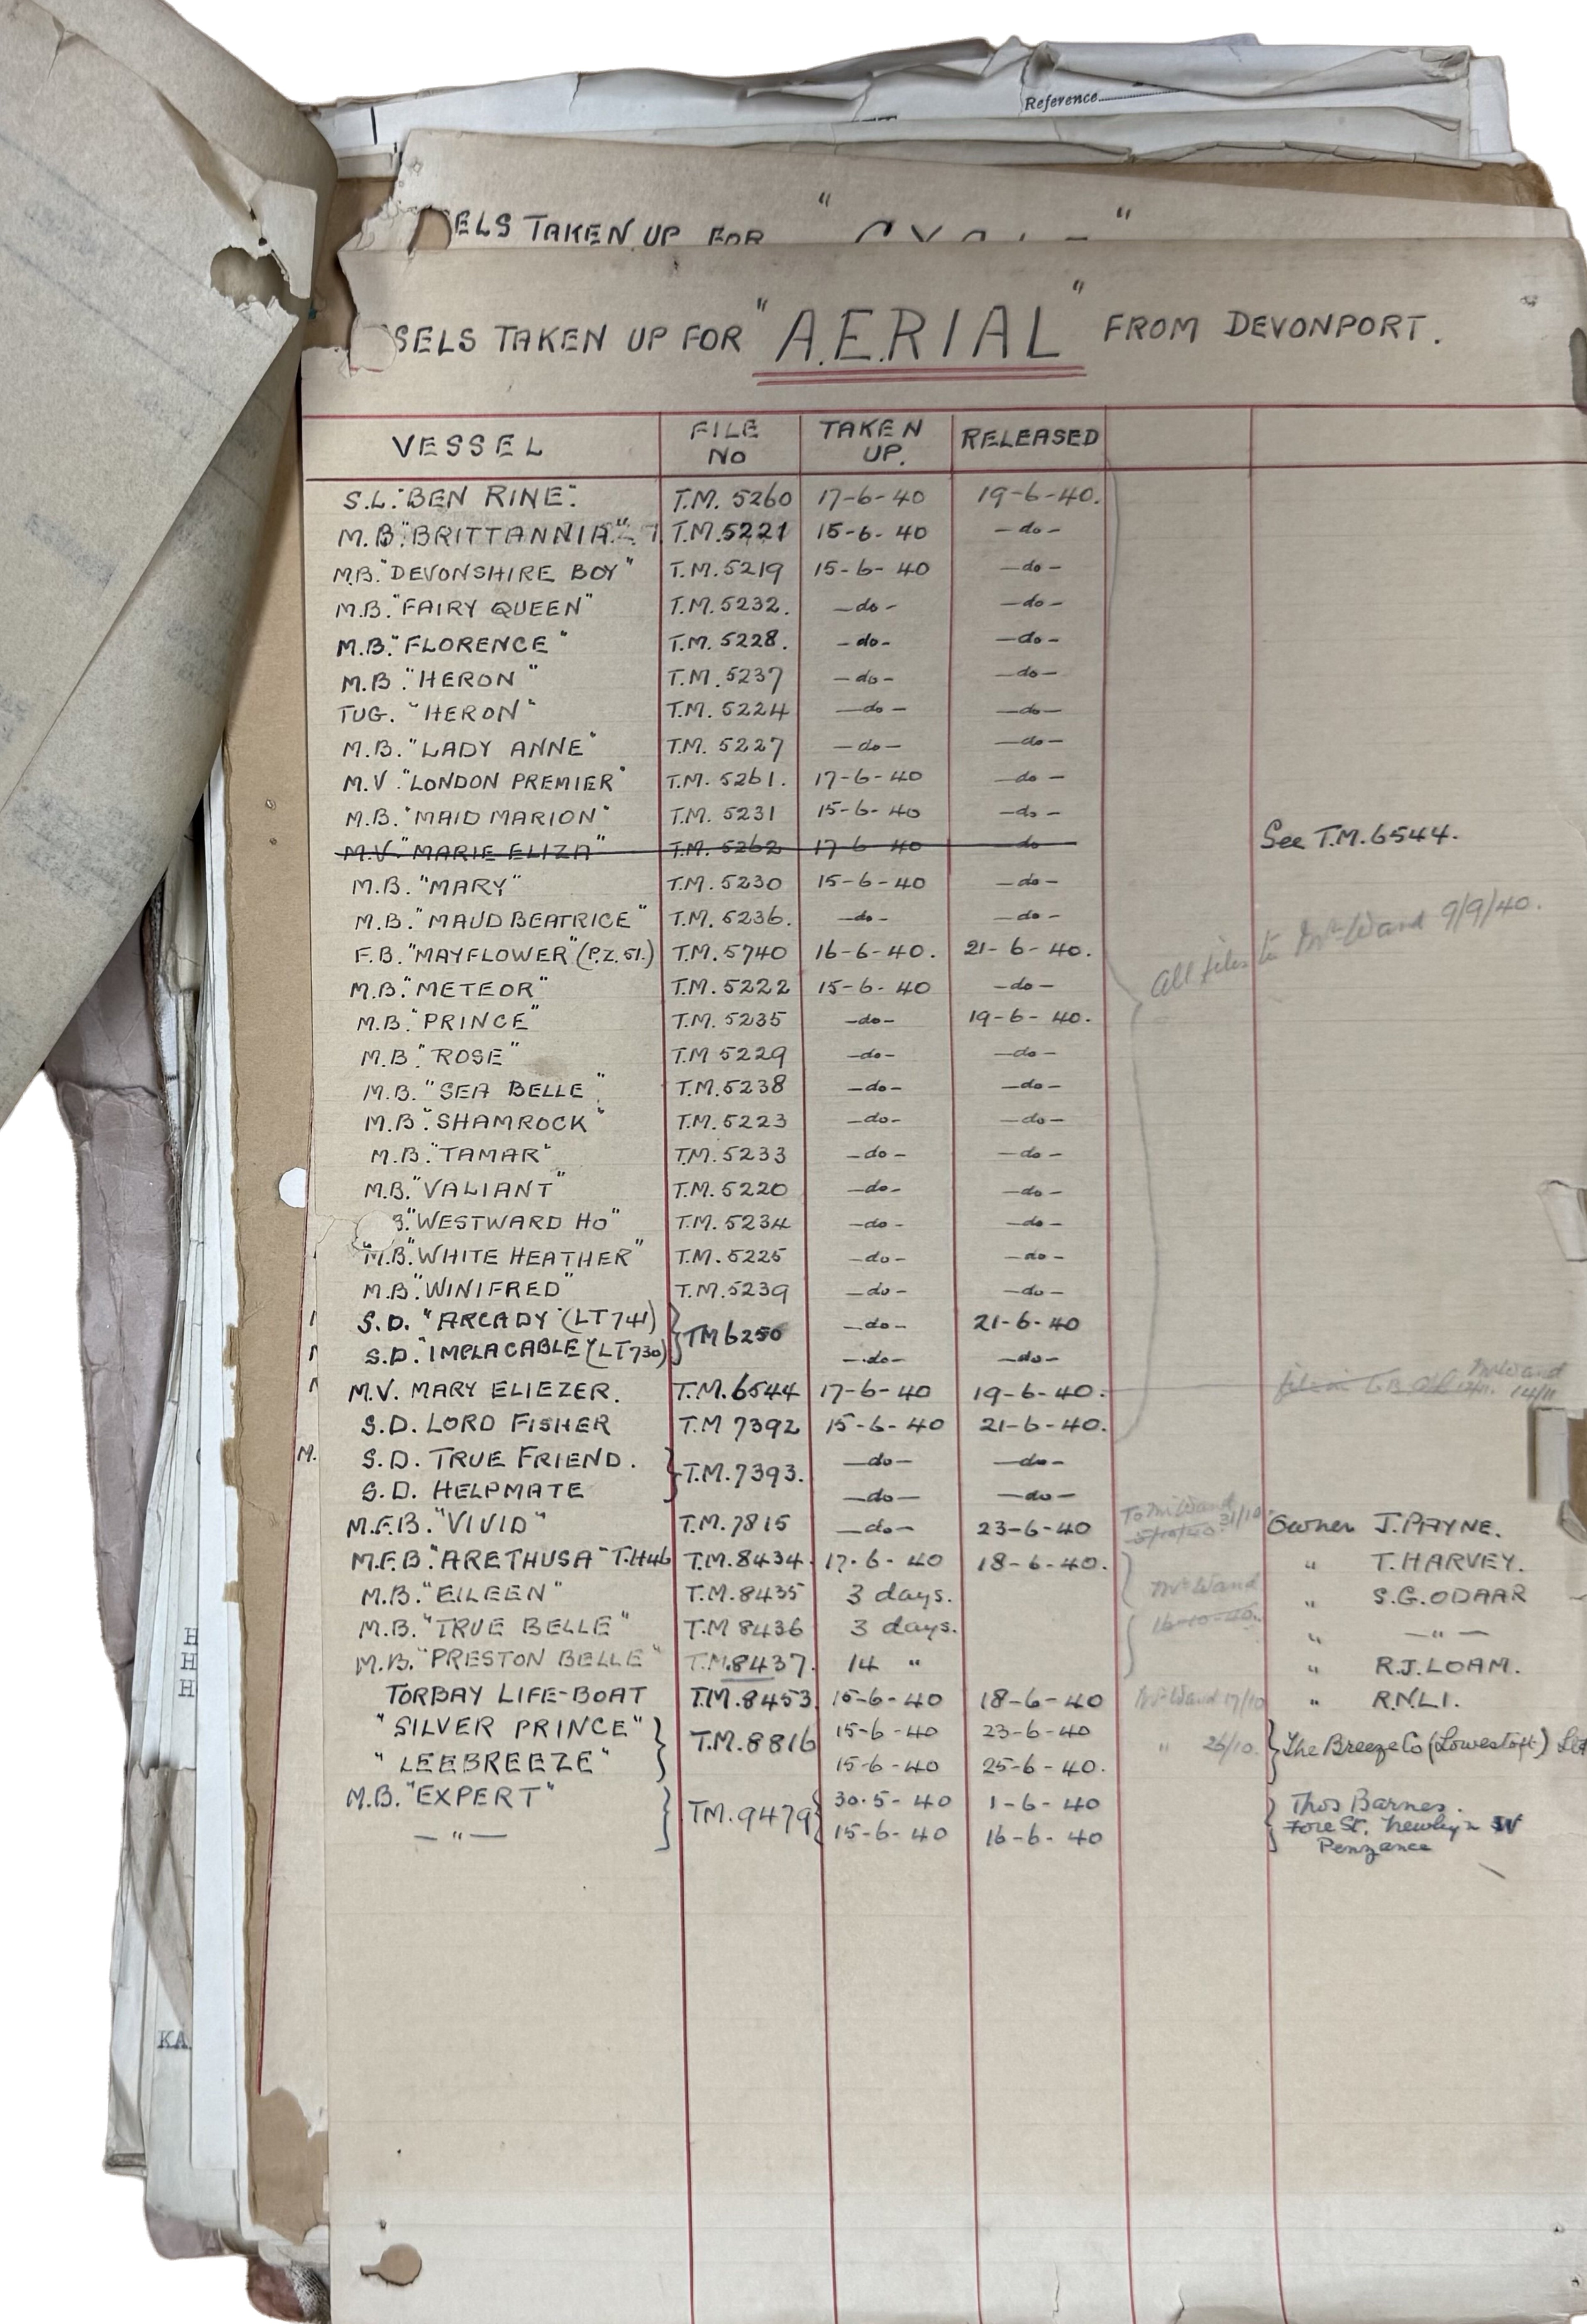 Reference
ELS TAKEN UP FOR "
SELS TAKEN UP FOR "AERIAL" FROM DEVONPORT.
VESSEL FILE NO TAKEN UP. RELEASED
S.L. "BEN RINE". T.M. 5260 17-6-40 19-6-40.
M.B. "BRITTANNIA" T.M. 5221 15-6-40 -do-
M.B. "DEVONSHIRE BOY" T.M. 5219 15-6-40 -do-
M.B. "FAIRY QUEEN" T.M. 5232. -do- -do-
M.B. "FLORENCE" T.M. 5228. -do- -do-
M.B. "HERON" T.M. 5237 -do- -do-
TUG. "HERON" T.M. 5224 -do- -do-
M.B. "LADY ANNE" T.M. 5227 -do- -do-
M.V. "LONDON PREMIER" T.M. 5261. 17-6-40 -do-
M.B. "MAID MARION" T.M. 5231 15-6-40 -do-
M.V. "MARIE ELIZA" T.M. 5262 17-6-40 -do- See T.M. 6544.
M.B. "MARY" T.M. 5230 15-6-40 -do-
M.B. "MAUD BEATRICE" T.M. 5236. -do- -do-
F.B. "MAYFLOWER" (P.Z. 51.) T.M. 5740 16-6-40. 21-6-40. All files to Mr Ward 9/9/40.
M.B. "METEOR" T.M. 5222 15-6-40 -do-
M.B. "PRINCE" T.M. 5235 -do- 19-6-40.
M.B. "ROSE" T.M 5229 -do- -do-
M.B. "SEA BELLE" T.M. 5238 -do- -do-
M.B. "SHAMROCK" T.M. 5223 -do- -do-
M.B. "TAMAR" T.M. 5233 -do- -do-
M.B. "VALIANT" T.M. 5220 -do- -do-
B. "WESTWARD HO" T.M. 5234 -do- -do-
M.B. "WHITE HEATHER" T.M. 5225 -do- -do-
M.B. "WINIFRED" T.M. 5239 -do- -do-
S.D. "ARCADY" (LT741) TM 6250 -do- 21-6-40
S.D. "IMPLACABLE" (LT730) -do- -do-
M.V. MARY ELIEZER. T.M. 6544 17-6-40 19-6-40. Mr Ward 14/11
S.D. LORD FISHER T.M 7392 15-6-40 21-6-40.
M. S.D. TRUE FRIEND. T.M. 7393. -do- -do-
S.D. HELPMATE -do- -do-
M.F.B. "VIVID" T.M. 7815 -do- 23-6-40 To Mr Ward 31/10 Owner J. PAYNE.
M.F.B. "ARETHUSA" T.H46 T.M. 8434. 17-6-40 18-6-40. " T. HARVEY.
M.B. "EILEEN" T.M. 8435 3 days. Mr Ward " S.G. ODAAR
M.B. "TRUE BELLE" T.M 8436 3 days. 16-10-40. " -"-
M.B. "PRESTON BELLE" T.M. 8437. 14 " " R.J. LOAM.
TORBAY LIFE-BOAT T.M. 8453. 15-6-40 18-6-40 Mr Ward 17/10 " R.N.L.I.
"SILVER PRINCE" T.M. 8816 15-6-40 23-6-40 " 26/10. The Breeze Co (Lowestoft)
"LEEBREEZE" 15-6-40 25-6-40.
M.B. "EXPERT" T.M. 9479 30-5-40 1-6-40 Thos Barnes.
-"- 15-6-40 16-6-40 Fore St. Newlyn W
Penzance
H
H
H
KA